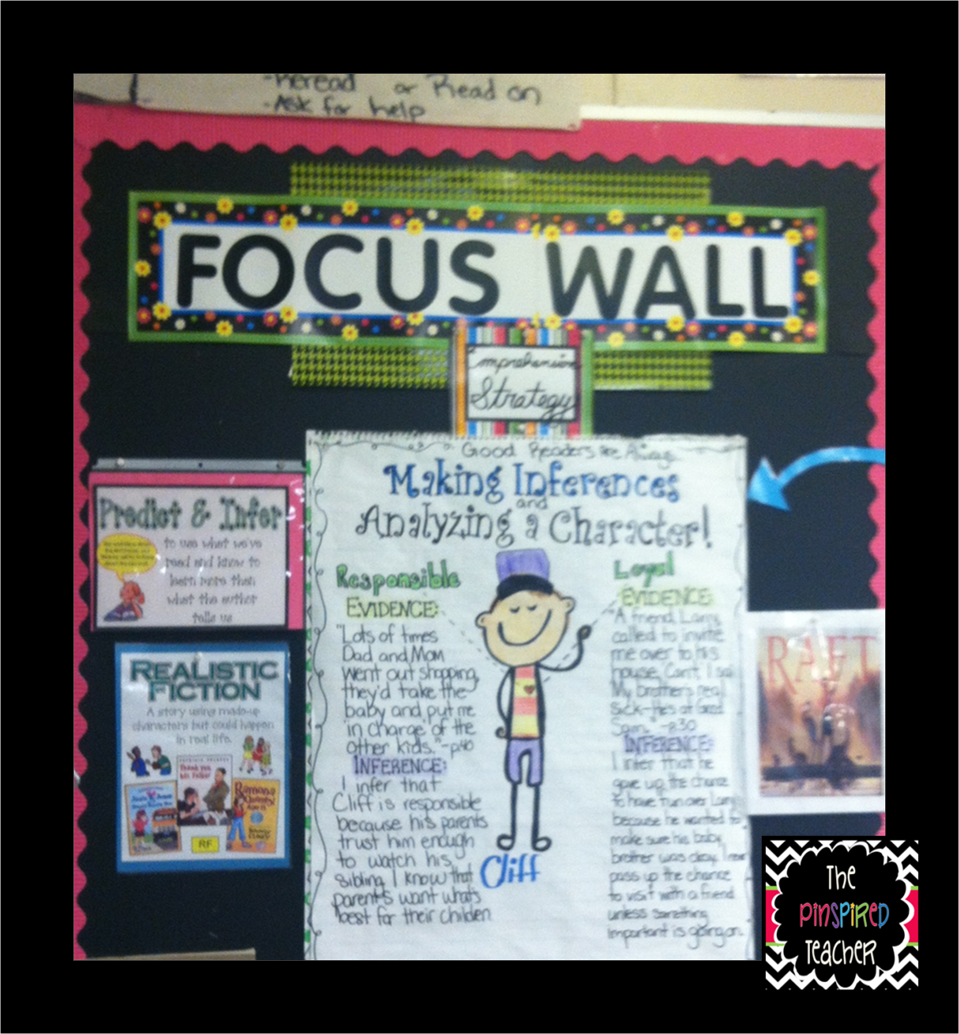 -Reread or Read on
-Ask for help
FOCUS WALL
Comprehension
Strategy
Good Readers are Always
Making Inferences
and
Analyzing a Character!
Predict & Infer
to use what we've
read and know to
learn more than
what the author
tells us
REALISTIC
FICTION
A story using made-up
characters but could happen
in real life.
Thank you,
Mr. Falker
Ramona
Quimby
RF
Responsible
EVIDENCE:
"Lots of times
Dad and Mom
went out shopping,
they'd take the
baby and put me
in charge of the
other kids."-p40
INFERENCE:
I infer that
Cliff is responsible
because his parents
trust him enough
to watch his
sibling. I know that
parents want what's
best for their children
Cliff
Loyal
EVIDENCE:
A friend, Larry,
called to invite
me over to his
house. Can't, I said
My brother's real
sick-He's at Good
Sam." -p30
INFERENCE:
I infer that he
gave up the chance
to have fun over Larry
because he wanted to
make sure his baby
brother was okay. I
pass up the chance
to visit with a friend
unless something
important is going on.
RAFT
The
PINSPIRED
TEACHER